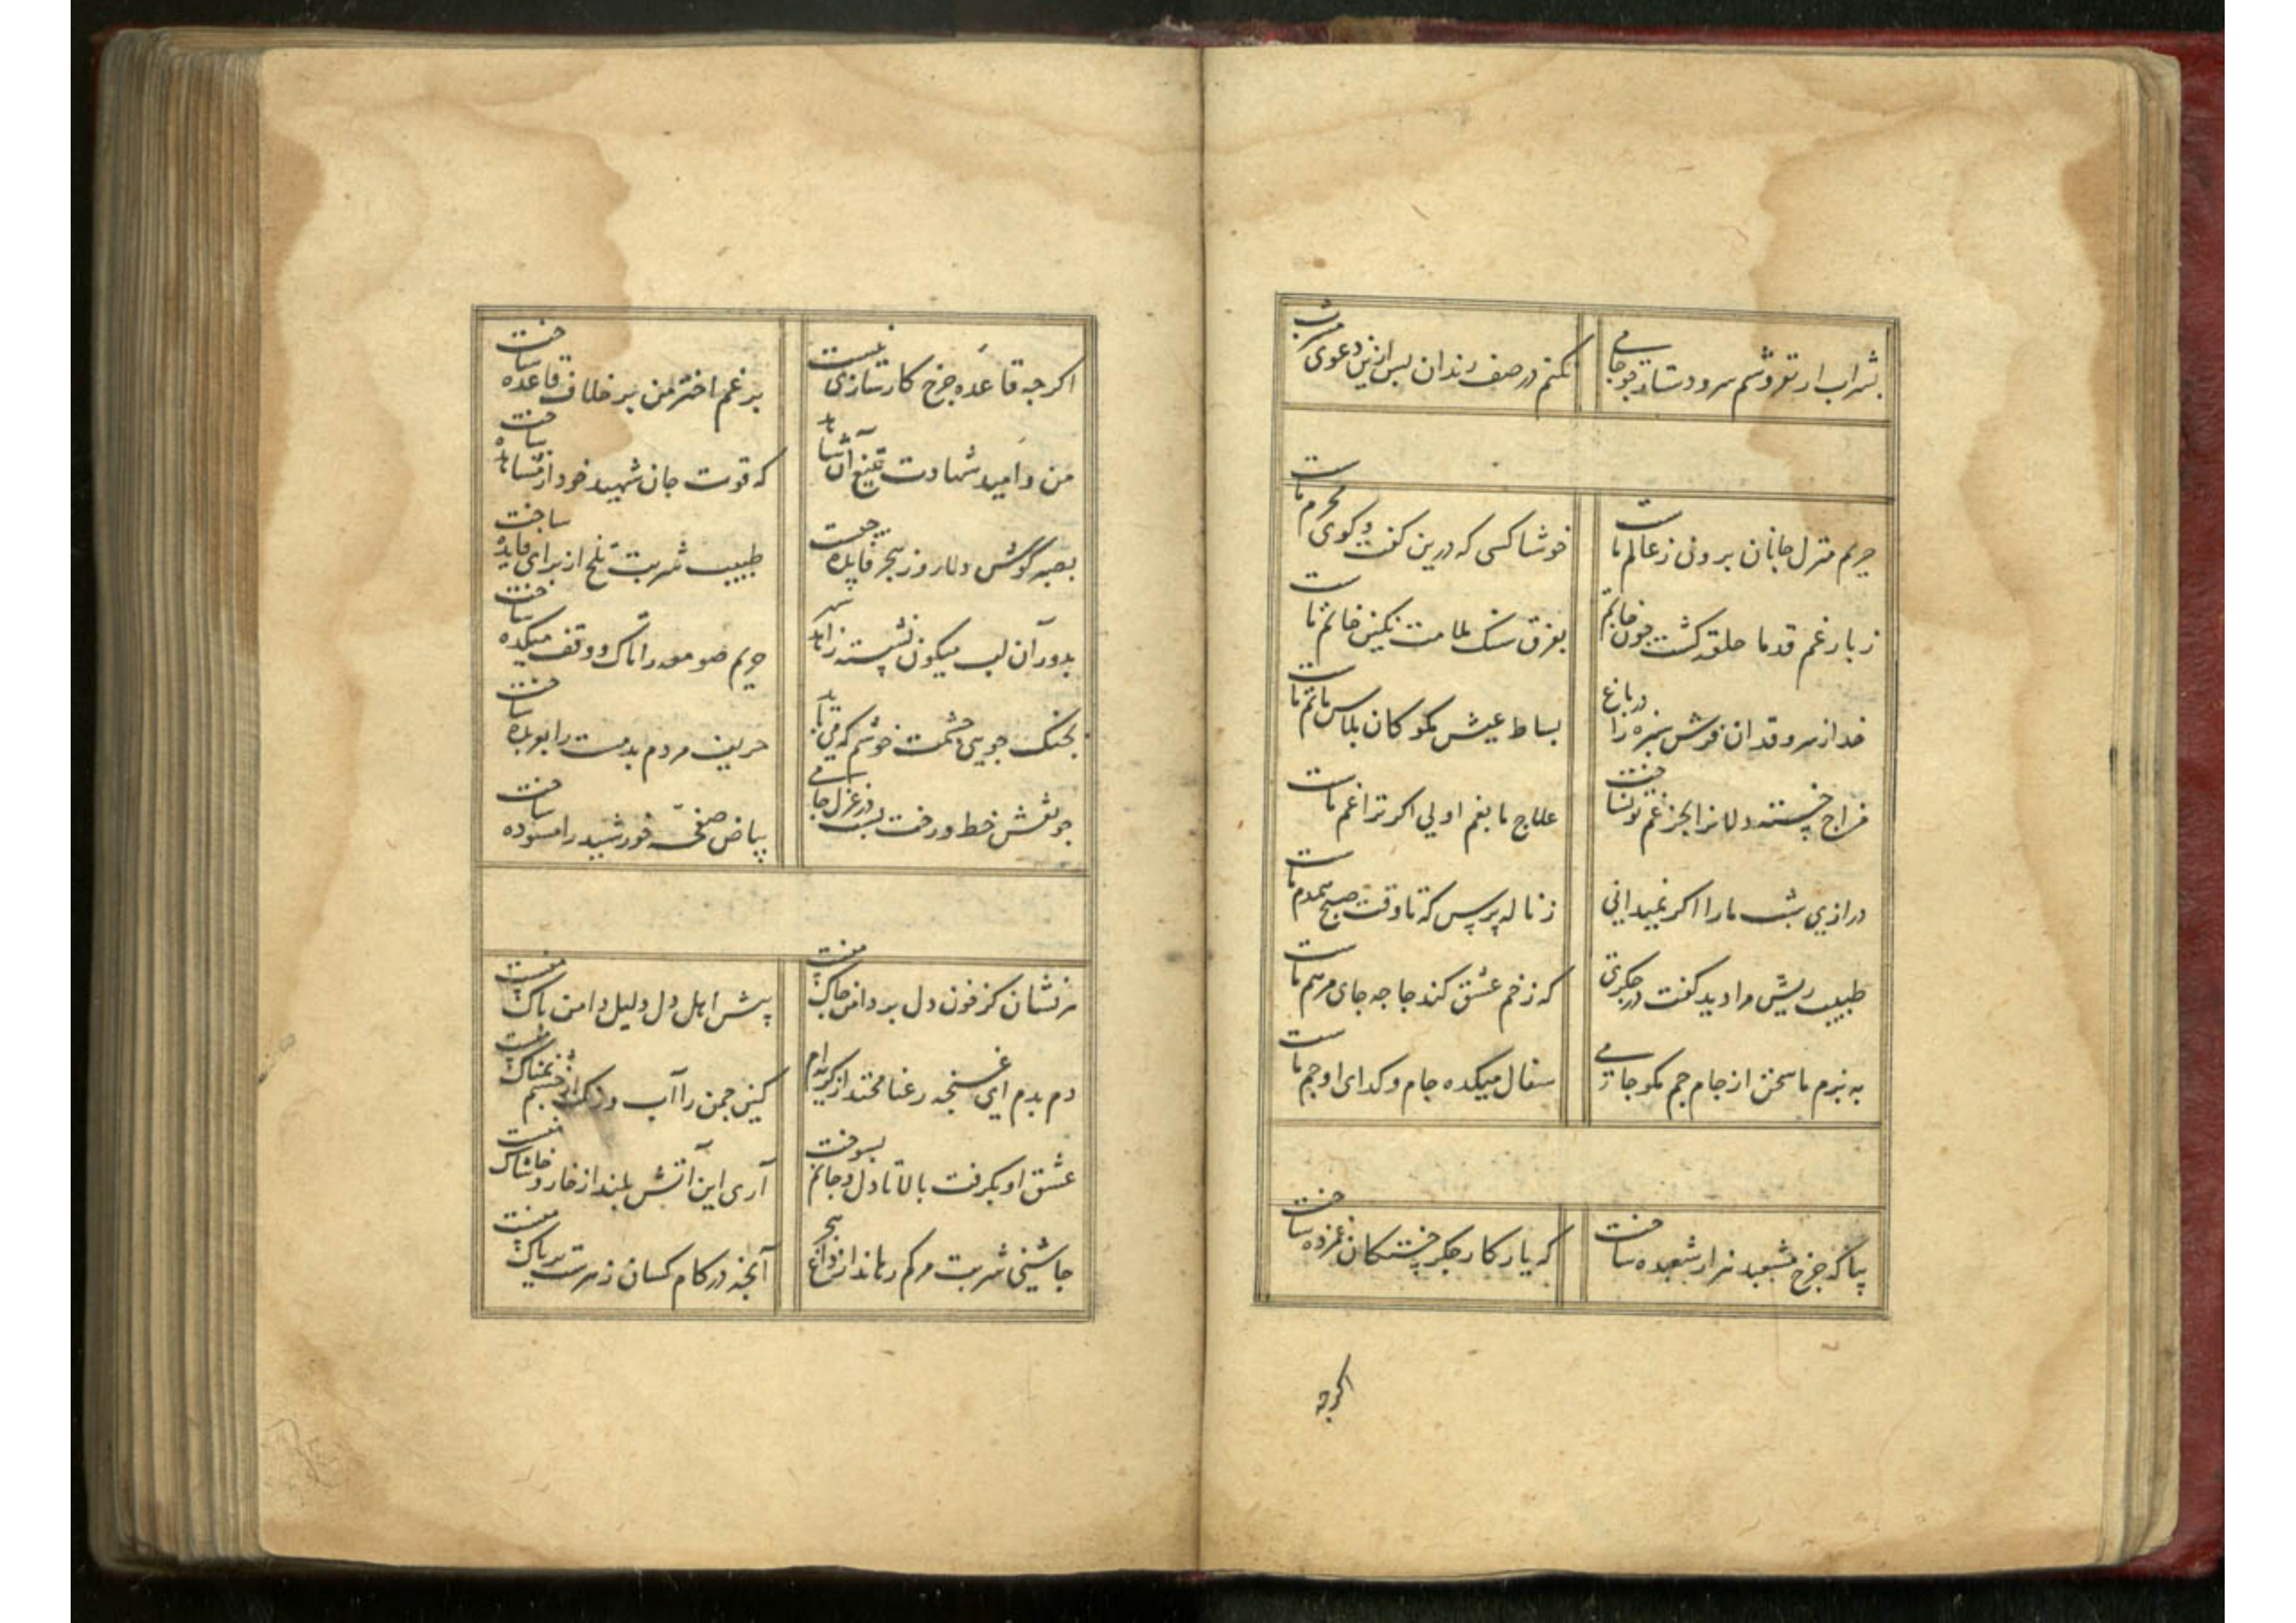 بشراب ار نفروشم سر و دستار چو جامی
نکنم در صف رندان پس ازین دعوی مشرب
حریم منزل جانان برون ز عالم ماست
خوشا کسی که درین گفت و کوی محرم ماست
ز بار غم قد ما حلقه کشت چون خاتم
بفرق سنک ملامت نکین خاتم ماست
جدا ز سرو قدان فرش سبزه را در باغ
بساط عیش مکو کان پلاس ماتم ماست
مزاج خسته دلانرا بجز غم تو نساخت
علاج ما بغم اولی اکر ترا غم ماست
درازی شب ما را اکر نمیدانی
ز ناله پرس که تا وقت صبح همدم ماست
طبیب ریش مرا دید کفت در جکرت
که زخم عشق کند جا چه جای مرهم ماست
به بزم ما سخن از جام جم مکو جامی
سفال میکده جام و کدای او جم ماست
بیا که چرخ مشعبد هزار شعبده ساخت
که یار کار جکر خستکان غمزده ساخت
اکرچه
اکرچه قاعده چرخ کارسازی نیست
برغم اختر من بر خلاف قاعده ساخت
من و امید شهادت بتیغ آن شاهد
که قوت جان شهید خود از مشاهده ساخت
بصبر کوش دلا روز هجر فایده چیست
طبیب شربت تلخ از برای فایده ساخت
بدور آن لب میکون نشسته زاهد شهر
حریم صومعه را تاک و وقف میکده ساخت
بجنک جویی چشمت خوشم که می باید
حریف مردم بدمست را بعربده ساخت
چو نقش خط و رخت بست در غزل جامی
بیاض صفحه خورشید را مسوده ساخت
هر نشان کز خون دل بر دامن چاک منست
پیش اهل دل دلیل دامن پاک منست
دم بدم ای غنچه رعنا مخند از کریه ام
کین چمن را آب و رنک از چشم نمناک منست
عشق او بکرفت بالا تا دل و جانم بسوخت
آری این آتش بلند از خار و خاشاک منست
چاشنی شربت مرکم رهاند از داغ هجر
آنچه در کام کسان زهرست تریاک منست